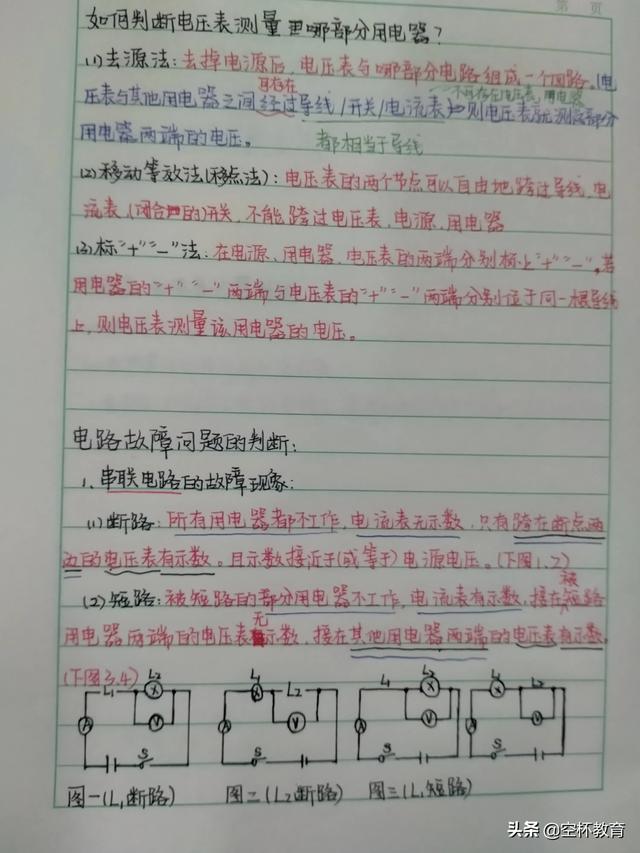 第 页
如何判断电压表测量哪部分用电器?
(1)去源法:去掉电源后,电压表与哪部分电路组成一个回路。(电
可存在 不可存在电压表、用电器
压表与其他用电器之间经过导线/开关/电流表)则电压表就测该部分
用电器两端的电压。 都相当于导线
(2)移动等效法(移点法):电压表的两个节点可以自由地跨过导线、电
流表、(闭合的)开关,不能跨过电压表、电源、用电器
(3)标"+""-"法:在电源、用电器、电压表的两端分别标上"+""-"。若
用电器的"+""-"两端与电压表的"+""-"两端分别位于同一根导线
上,则电压表测量该用电器的电压。
电路故障问题的判断:
1、串联电路的故障现象:
(1)断路:所有用电器都不工作,电流表无示数,只有跨在断点两
边的电压表有示数。且示数接近于(或等于)电源电压。(下图1、2)
(2)短路:被短路的部分用电器不工作,电流表有示数,接在被短路
用电器两端的电压表无示数,接在其他用电器两端的电压表有示数。
(下图3、4)
L₁ L₂ L₁ L₂ L₁ L₂ L₁ L₂
A X V S A X V S A X V S A X V S
图一(L₁断路) 图二(L₂断路) 图三(L₁短路)
头条 @空杯教育